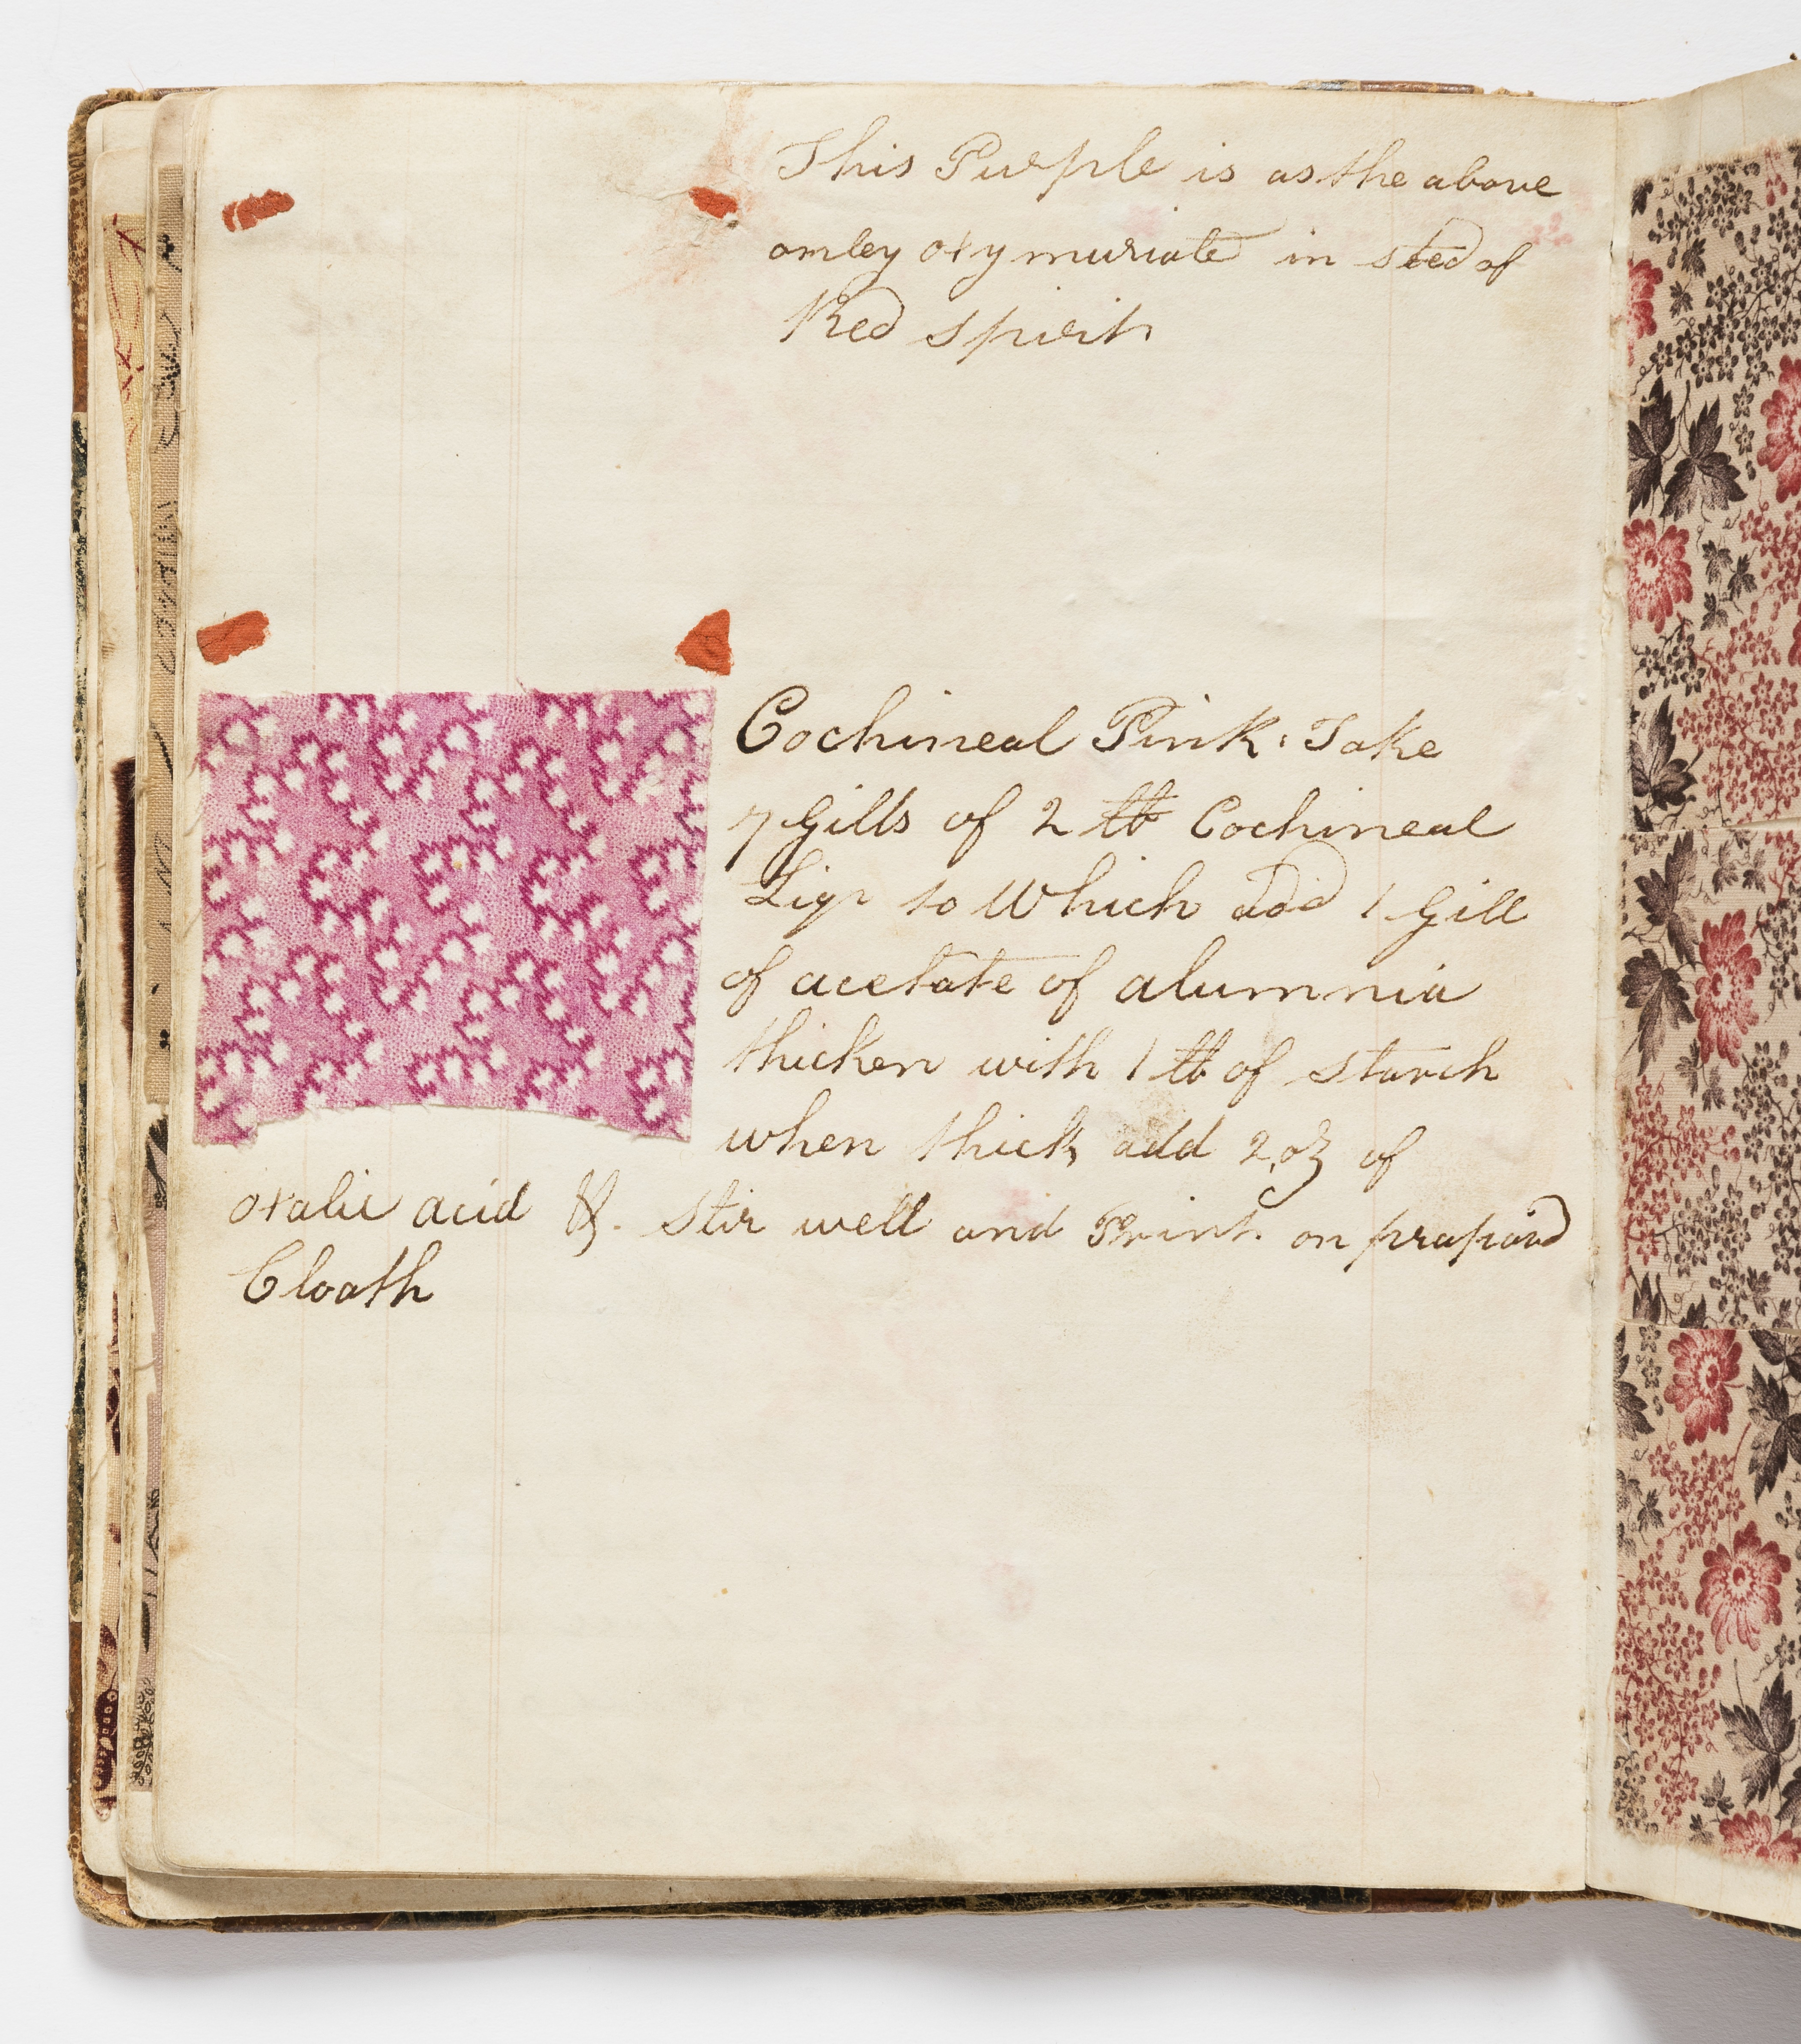 This Purple is as the above
onley oxymuriate in sted of
Red spirit
Cochineal Pink. Take
7 Gills of 2 lb Cochineal
Liqr to Which add 1 Gill
of acetate of alumnia
thicken with 1 lb of starch
when thick add 2 oz of
oxalic acid &. Stir well and Print. on prepard
Cloath